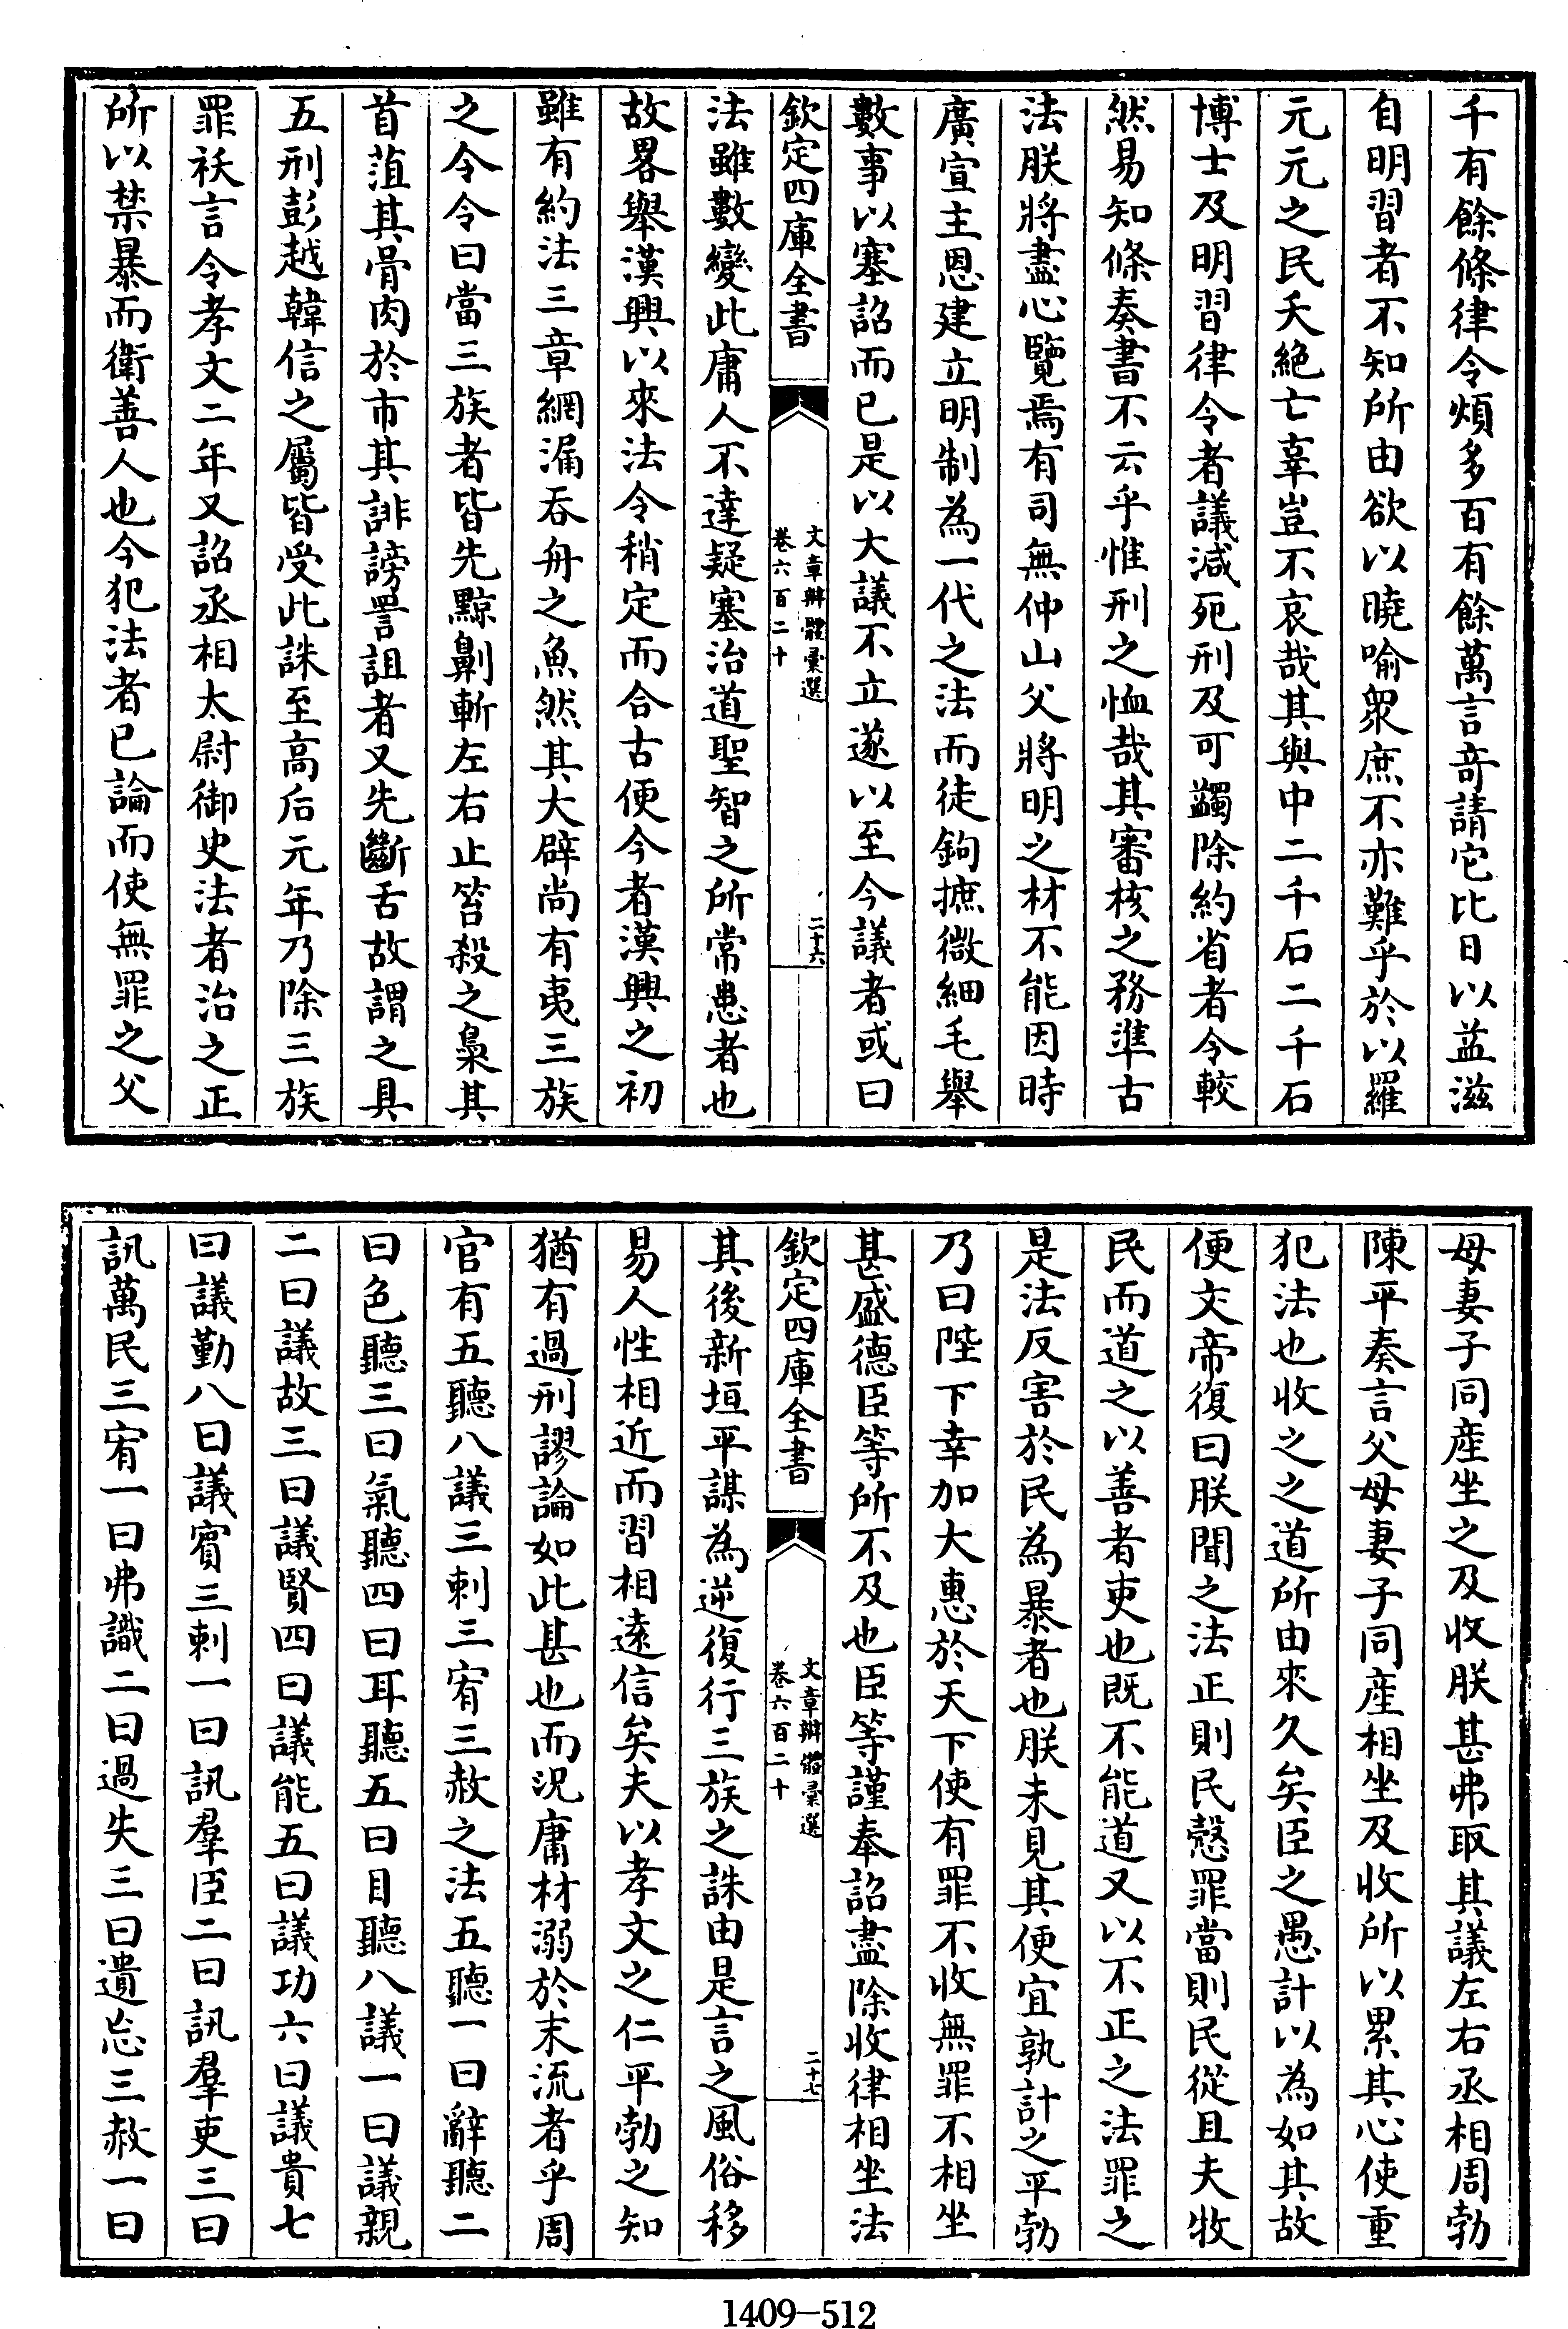 千有餘條律令煩多百有餘萬言奇請它比日以益滋
自明習者不知所由欲以曉喻衆庶不亦難乎於以羅
元元之民夭絶亡辜豈不哀哉其與中二千石二千石
博士及明習律令者議減死刑及可蠲除約省者令較
然易知條奏書不云乎惟刑之恤哉其審核之務準古
法朕將盡心覽焉有司無仲山父將明之材不能因時
廣宣主恩建立明制為一代之法而徒鉤摭微細毛舉
數事以塞詔而已是以大議不立遂以至今議者或曰
欽定四庫全書
文章辨體彙選
卷六百二十
二十六
法雖數變此庸人不達疑塞治道聖智之所常患者也
故畧舉漢興以來法令稍定而合古便今者漢興之初
雖有約法三章網漏吞舟之魚然其大辟尚有夷三族
之令令曰當三族者皆先黥劓斬左右止笞殺之梟其
首菹其骨肉於市其誹謗詈詛者又先斷舌故謂之具
五刑彭越韓信之屬皆受此誅至高后元年乃除三族
罪祅言令孝文二年又詔丞相太尉御史法者治之正
所以禁暴而衛善人也今犯法者已論而使無罪之父
母妻子同産坐之及收朕甚弗取其議左右丞相周勃
陳平奏言父母妻子同産相坐及收所以累其心使重
犯法也收之之道所由來久矣臣之愚計以為如其故
便文帝復曰朕聞之法正則民慤罪當則民從且夫牧
民而道之以善者吏也既不能道又以不正之法罪之
是法反害於民為暴者也朕未見其便宜孰計之平勃
乃曰陛下幸加大惠於天下使有罪不收無罪不相坐
甚盛德臣等所不及也臣等謹奉詔盡除收律相坐法
欽定四庫全書
文章辨體彙選
卷六百二十
二十七
其後新垣平謀為逆復行三族之誅由是言之風俗移
易人性相近而習相遠信矣夫以孝文之仁平勃之知
猶有過刑謬論如此甚也而況庸材溺於末流者乎周
官有五聽八議三刺三宥三赦之法五聽一曰辭聽二
曰色聽三曰氣聽四曰耳聽五曰目聽八議一曰議親
二曰議故三曰議賢四曰議能五曰議功六曰議貴七
曰議勤八曰議賓三刺一曰訊羣臣二曰訊羣吏三曰
訊萬民三宥一曰弗識二曰過失三曰遺忘三赦一曰
1409—512